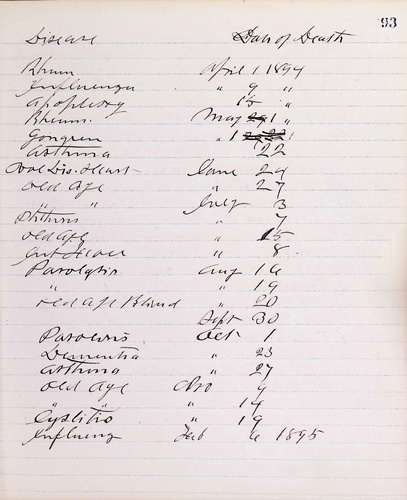 93
Disease Date of Death
Rheum April 1 1894
Influenza " 9 "
Apoplexy 15 "
Rheum. May 1 "
Gongren " 1
Asthma 22
Val Dis. Heart June 24
Old Age " 27
" " July 3
Phthisis " 7
Old Age 15
Heart " 8
Paralysis Aug 16
" " 19
Old Age Blind " 20
Sept 30
Paralysis Oct 1
Dementia 23
Asthma 27
Old Age 9
" " 14
Cystitis " 19
Influenz Feb 6 1895